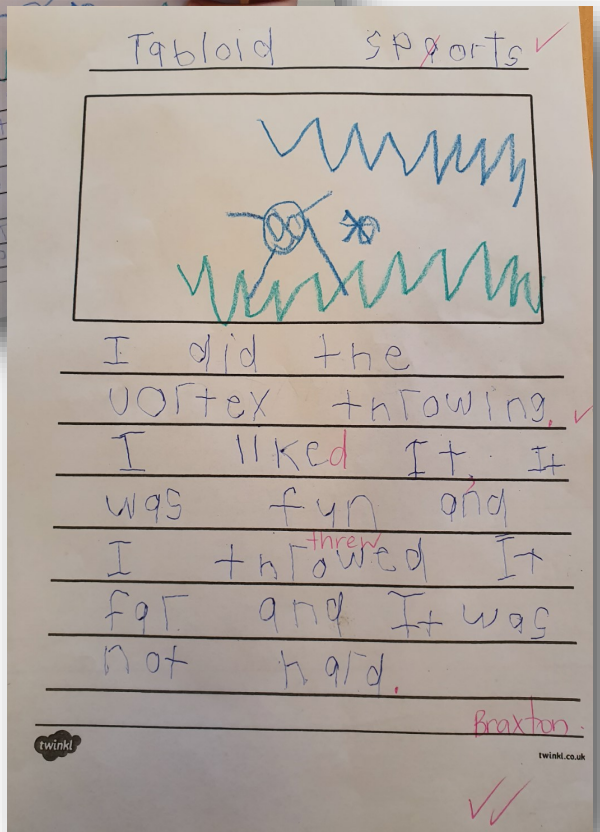 Tabloid Spaorts
I did the
vortex throwing.
I liked It. It
was fun and
threw
I throwed It
far and It was
not hard.
Braxton
twinkl
twinkl.co.uk